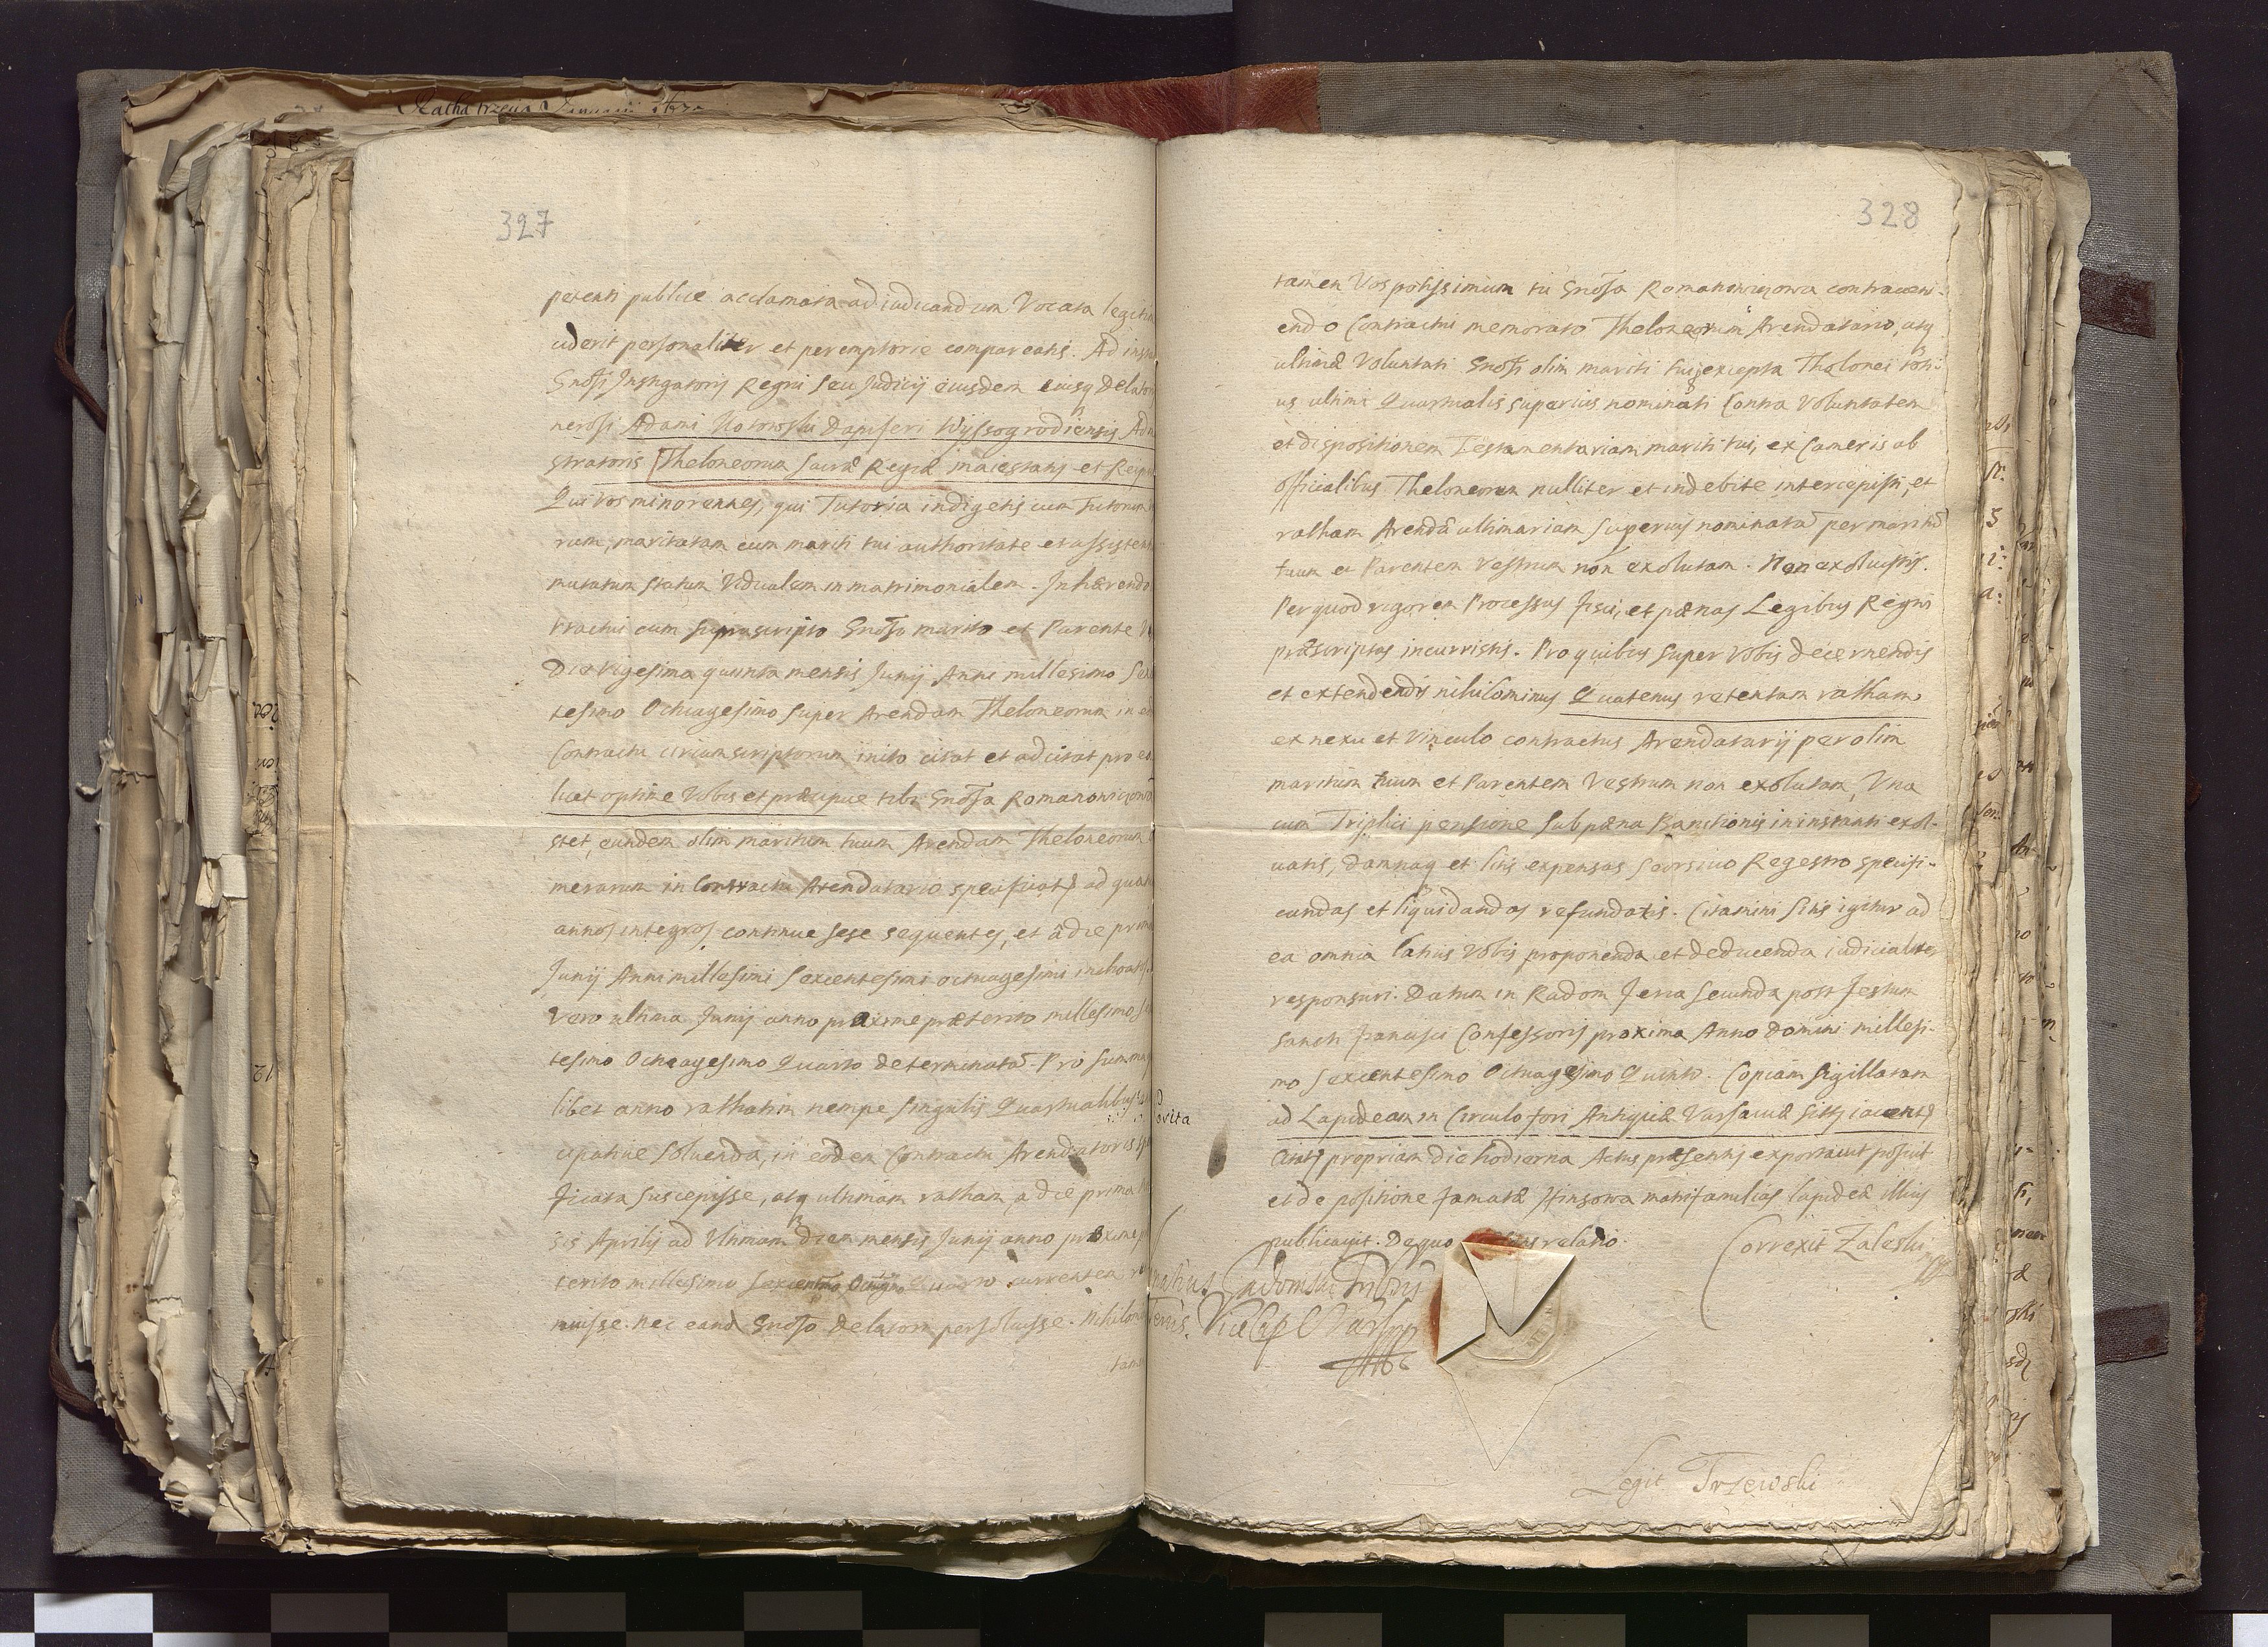 327
petenti publice acclamata ad iudicandum Vocata legiti
uderit personaliter et peremptorie compareatis. Ad inst
Gnosi Instigatoris Regni seu Judicij eiusdem eiusq delator
nerosi Adami Kotowski Dapiferi Wyssogrodiensis Ad
stratoris Theloneorum Sacræ Regiæ maiestatis et Reip
Qui vos minorennes, qui Tutoria indigetis cum Tutorum
rum, maritatam cum mariti tui authoritate et assisten
mutatum statum Vidualem in matrimonialem. Inhærendo
tractui cum suprascripto Gnoso marito et Parente
Die Vigesima quinta mensis Junij Anni millesimo Sex
tesimo Octuagesimo super Arendam Theloneorum in
Contractu circumscriptorum inito citat et adcitat pro eo
licet optime Vobis et præcipue tibi Gnosa Romanowiczowa
stet, eundem olim maritum tuum Arendam Theloneorum
merarum in Contractu Arendatario specificat ad qua
annos integros continue sese sequentes, et à die prim
Junij Anni millesimi Sexcentesimi octuagesimi inchoat
vero ultima Junij anno proxime præterito millesimo
tesimo Octuagesimo Quarto determinata. Pro summa
libet anno rathatim nempe singulis Quartualibus
cipative soluenda, in eodem Contractu Arendatorio
ficata suscepisse, atq ultimam ratham, a die prima
sis Aprilis ad Vltimam diem mensis Junij anno proxime
terito millesimo Sexcentmo Octuagmo Quarto currentem
nuisse. nec eand Gnoso delatori persoluisse. Nihilom
tam
328
tamen Vos potissimum tu Gnosa Romanowiczowa contraveni-
endo Contractui memorato Theloneorum Arendatario, atq
ultimæ Voluntati Gnosi olim mariti tui, excepta Tholonei toti-
us ultimi Quartualis superius nominati Contra Voluntatem
et dispositionem Testamentariam mariti tui, ex Cameris ab
Officialibus Theloneorum nulliter et indebite intercepisti, et
ratham Arendæ ultimariam superius nominata per maritu
tuum et Parentem Vestrum non exolutam. Non exoluistis.
Per quod rigorem Processus fisci, et pænas Legibus Regni
præscriptas incurristis. Pro quibus super Vobis decernendis
et extendendis nihilominus Quatenus retentam ratham
ex nexu et Vinculo contractus Arendatarij per olim
maritum tuum et Parentem Vestrum non exolutam, Vna
cum Triplici pensione sub pæna Bannitionis in instanti exol-
uatis, damnaq et litis expensas seorsivo Regestro specifi-
candas et liquidandas refundatis. Citamini sitis igitur ad
ea omnia latius Vobis proponenda et deducenda iudicialiter
responsuri. Datum in Radom feria secunda post festum
Sancti Francisci Confessoris proxima Anno Domini millesi-
mo Sexcentesimo Octuagesimo Quinto. Copiam sigillatam
ad Lapideam in Circulo fori Antiquæ Varsaviæ sitq iacent
propriam die hodierna Actus præsentis exportavit posuit
et de positione famatæ Hinzowa matrifamilias lapideæ illius
publicavit. De quo relatio.
Correxit Zaleski
Legit Trzewski